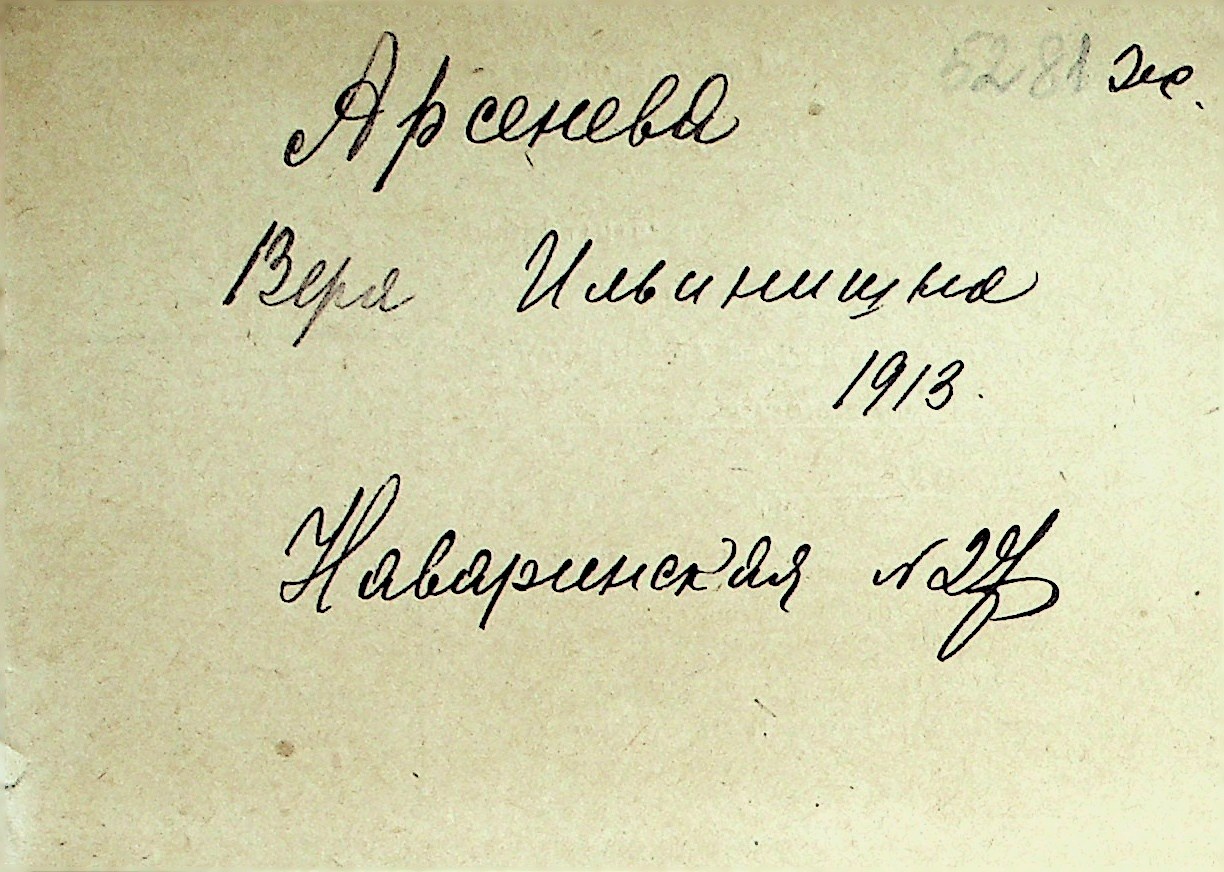 5281 Эк.
Арсенева
Вера Ильинишна
1913.
Наваринская N 27